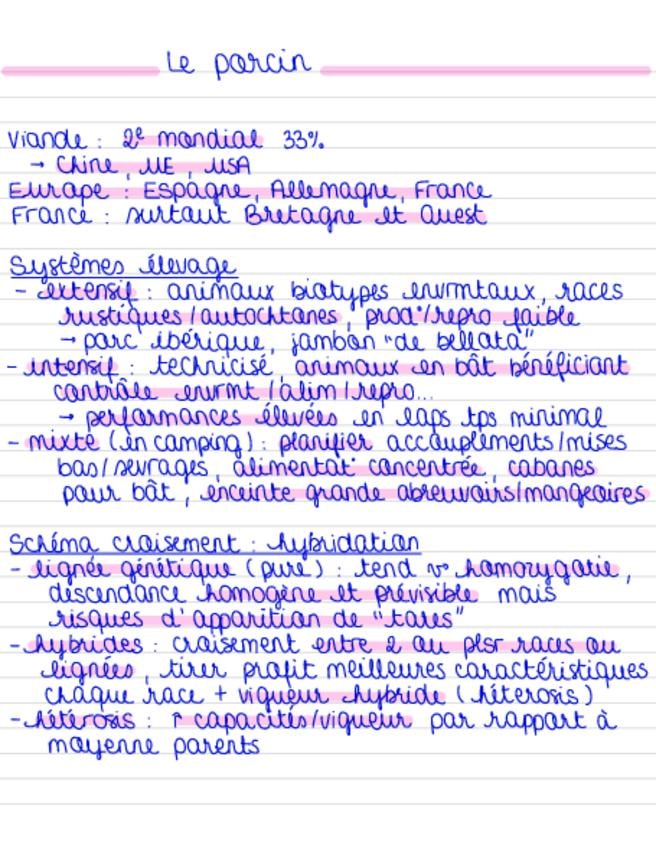 Le porcin
Viande : 2e mondial 33%
→ Chine, UE, USA
Europe : Espagne, Allemagne, France
France : surtout Bretagne et Ouest
Systèmes élevage
- extensif : animaux biotypes envrmtaux, races
rustiques/autochtones, prod°/repro faible
→ porc ibérique, jambon "de bellata"
- intensif : technicisé, animaux en bât bénéficiant
contrôle envrmt/alim/repro...
→ performances élevées en laps tps minimal
- mixte (en camping) : planifier accouplements/mises
bas/sevrages, alimentat° concentrée, cabanes
pour bât, enceinte grande abreuvoirs/mangeoires
Schéma croisement : hybridation
- lignée génétique (pure) : tend vs homozygotie,
descendance homogène et prévisible mais
risques d'apparition de "tares"
- hybrides : croisement entre 2 ou plsr races ou
lignées, tirer profit meilleures caractéristiques
chaque race + vigueur hybride (hétérosis)
- hétérosis : ↑ capacités/vigueur par rapport à
moyenne parents